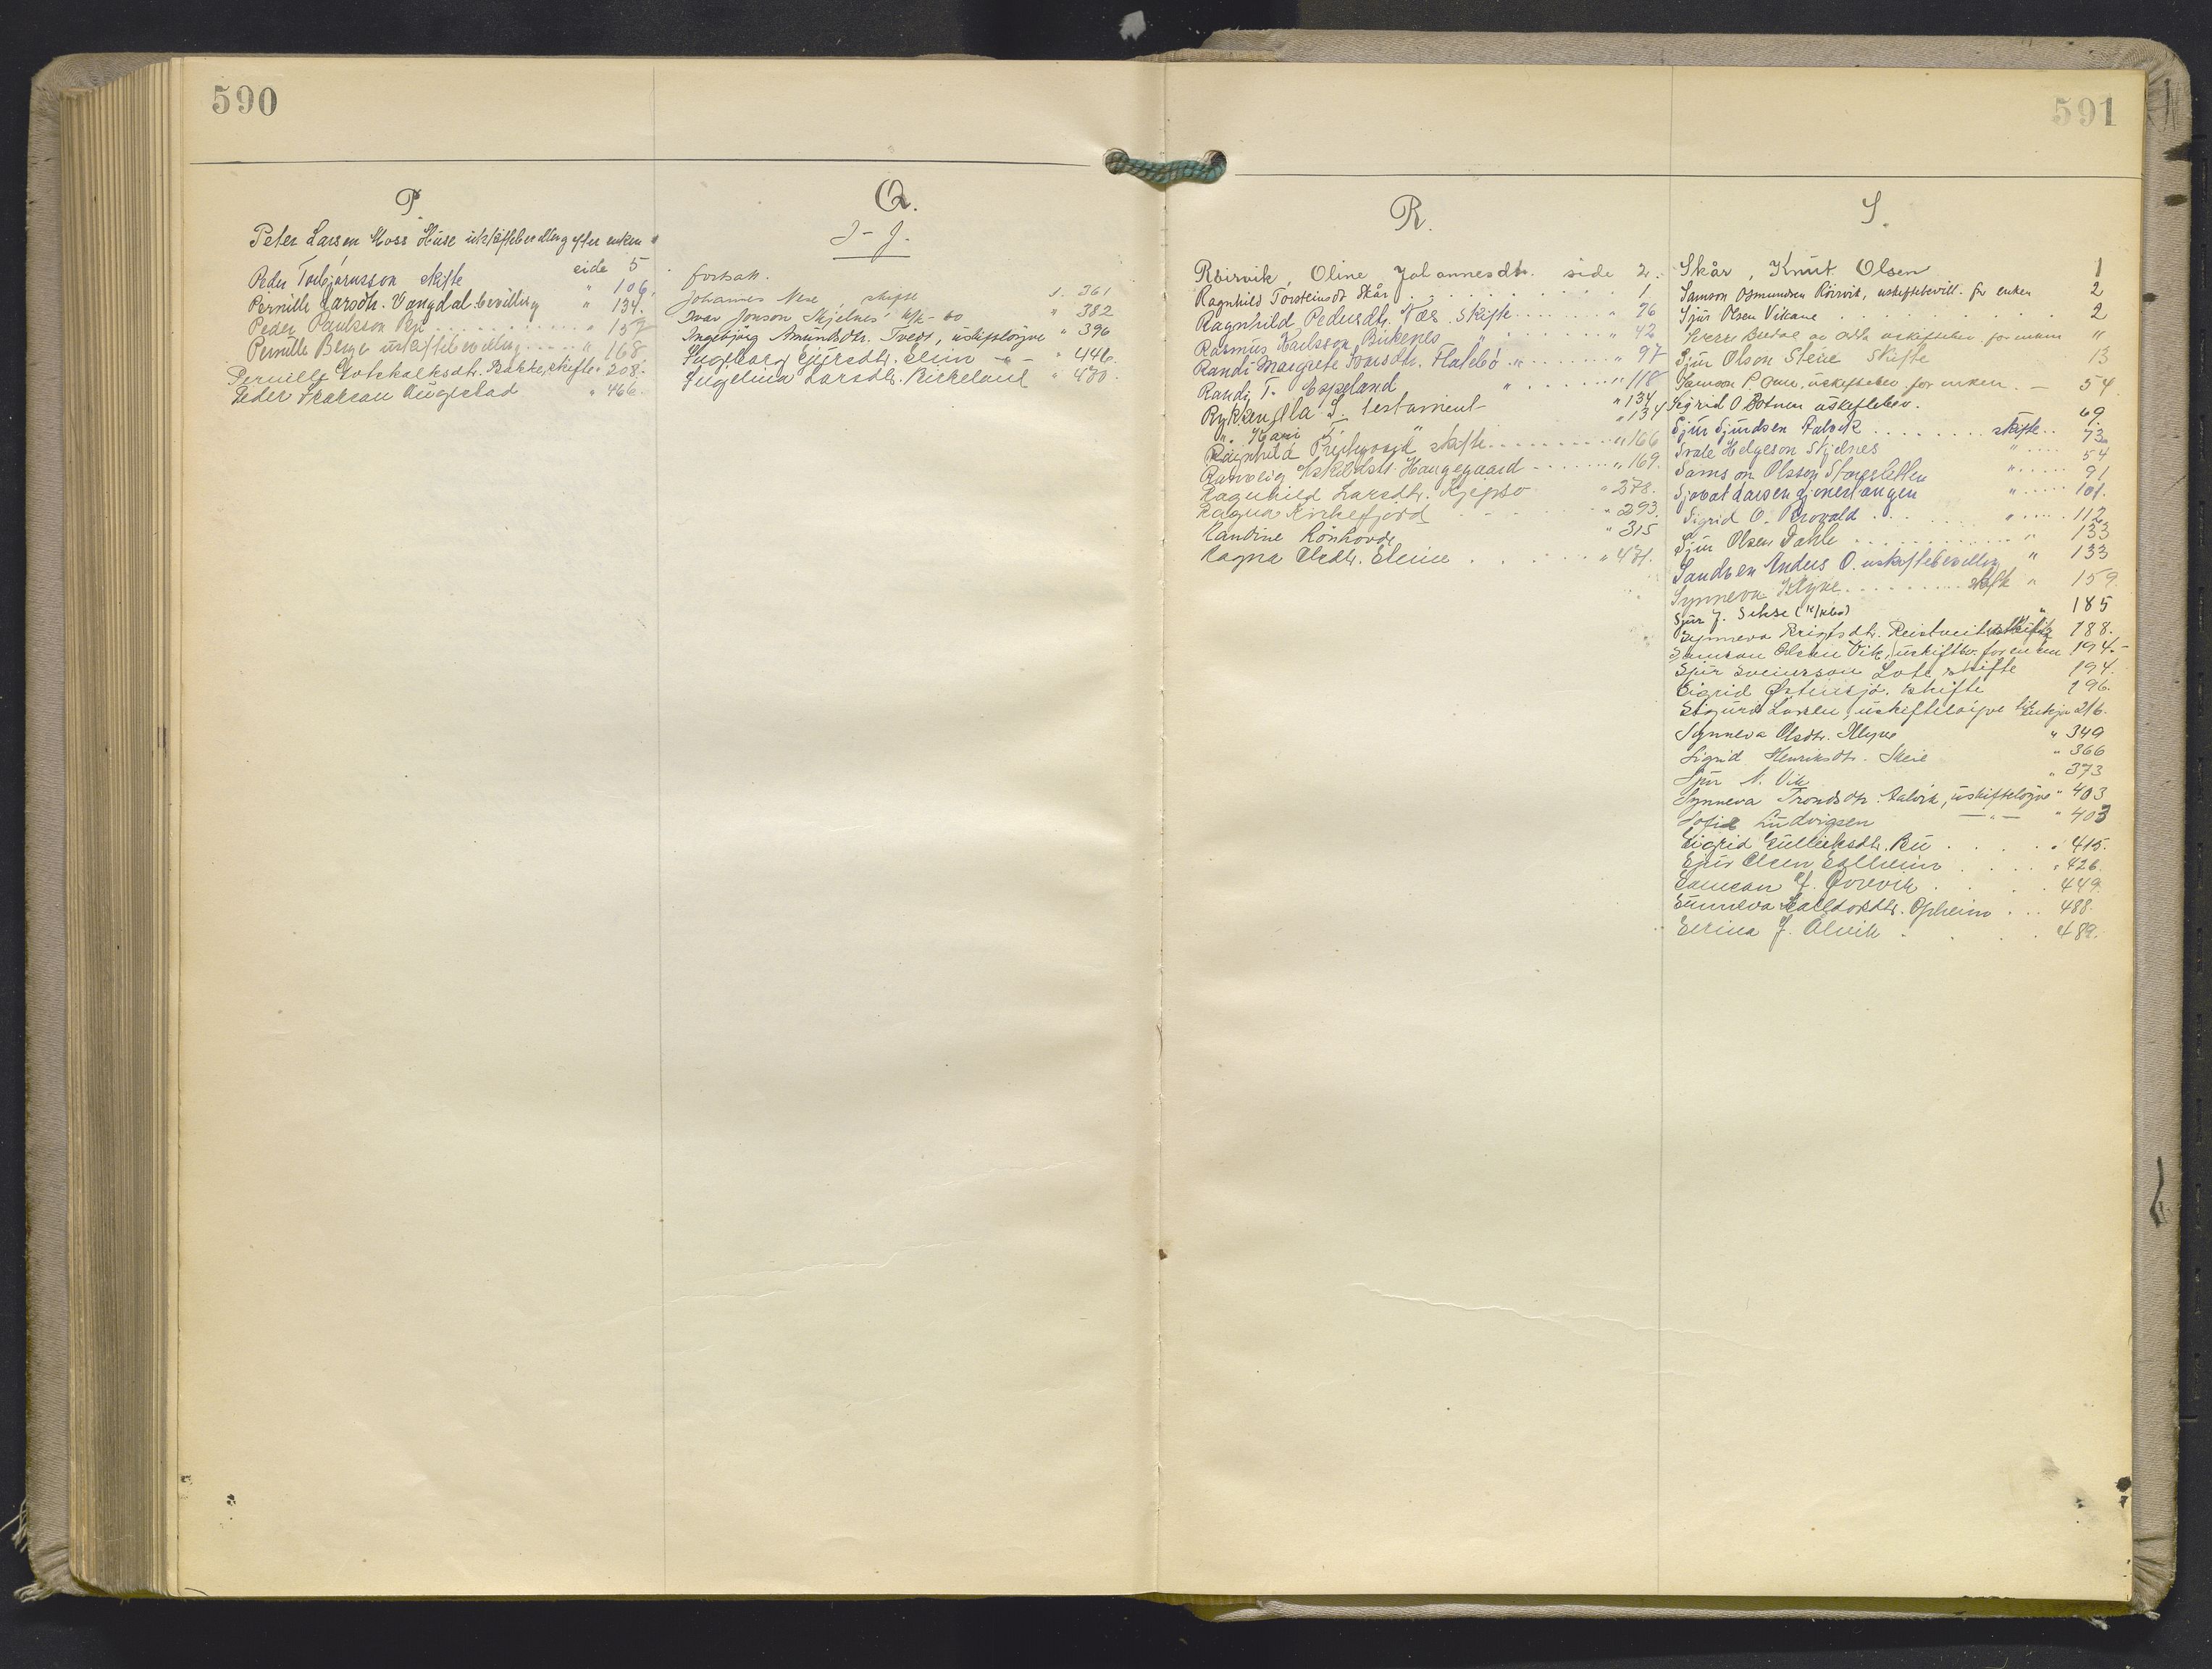 590
P.
Peter Larsen Moss Huse uskiftebevilling efter enken
side 5
Peder Torbjørnsson skifte " 106.
Pernille Larsdtr. Vangdal bevilling " 134.
Peder Paulsson " 157
Pernille Berge uskiftebevilling " 168
Pernille Gotskalksdtr. Bakke, skifte " 208.
Peder Augestad " 466.
Q.
I - J.
fortsatt.
Johannes Nese, skifte s. 361
Ivar Jonson Skjelnes " 382
Ingebjørg Amundsdtr. Tveit, uskifteløyve " 396
Ingeborg Sjursdtr. - " - " 446.
Ingelina Larsdtr. Birkeland " 470
591
R.
Röirvik, Oline Johannesdtr. side 2.
Ragnhild Torsteinsdt Skår 1
Ragnhild Pedersdtr. Næs. Skifte " 76
Rasmus Karlsson, Birkenes " " 42
Randi Margrete Ivarsdtr. Flatebø " " 97
Randi T. Espeland " " 118
Rykken, Ola S. testament " 134
" Kari T. " " 134
Ragnhild skifte " 166
Rannveig Haugegaard " 169.
Ragnhild Larsdtr. Kjepso " 278.
Ragna Kirkefjord " 293.
Randine Rönhovde " 315
Ragna Olsdtr. " 471.
S.
Skår, Knut Olsen 1
Samson Osmundsen Röirvik, uskiftebevill. for enken 2
Sjur Olsen Vikane 2
uskiftebev for "
Sjur Olson Steine Skifte 13
Samson P. uskiftebev for enken. — 54
Sigrid O Botnen uskiftebev. 69.
Sjur Sjurdsen Aalvik skifte 73
Helgeson Skjelnes " 54
Samson Olsson " 91
Larsen " 101.
Sigrid O. " 112
Sjur Olsen Dahle " 133
Sandven Anders O. uskiftebevilling " 133
Synneva Klyve skifte " 159
Sjur J. Sekse " 185
Synneva Brigtsdtr. Reistveit 188.
Samson Olsen Vik, uskiftbev. for enken 194.
Sjur Sveinsson Lote skifte 194.
Sigrid Østensjø. skifte 196.
Sigurd Larsen, uskifteløyve til enkja 216.
Synneva Olsdtr. Klyve " 349
Sigrid Henriksdtr. Skeie " 366
Sjur N. Vik " 373
Synneva Trondsdtr. Aalvik, uskifteløyve " 403
Sofie Ludvigsen — " — " 403
Sigrid Gulleiksdtr. Bu " 415.
Sjur Olsen " 426.
Samson 449.
Sunneva Halldorsdtr. Opheim 488.
Serina J. Alvik 489.